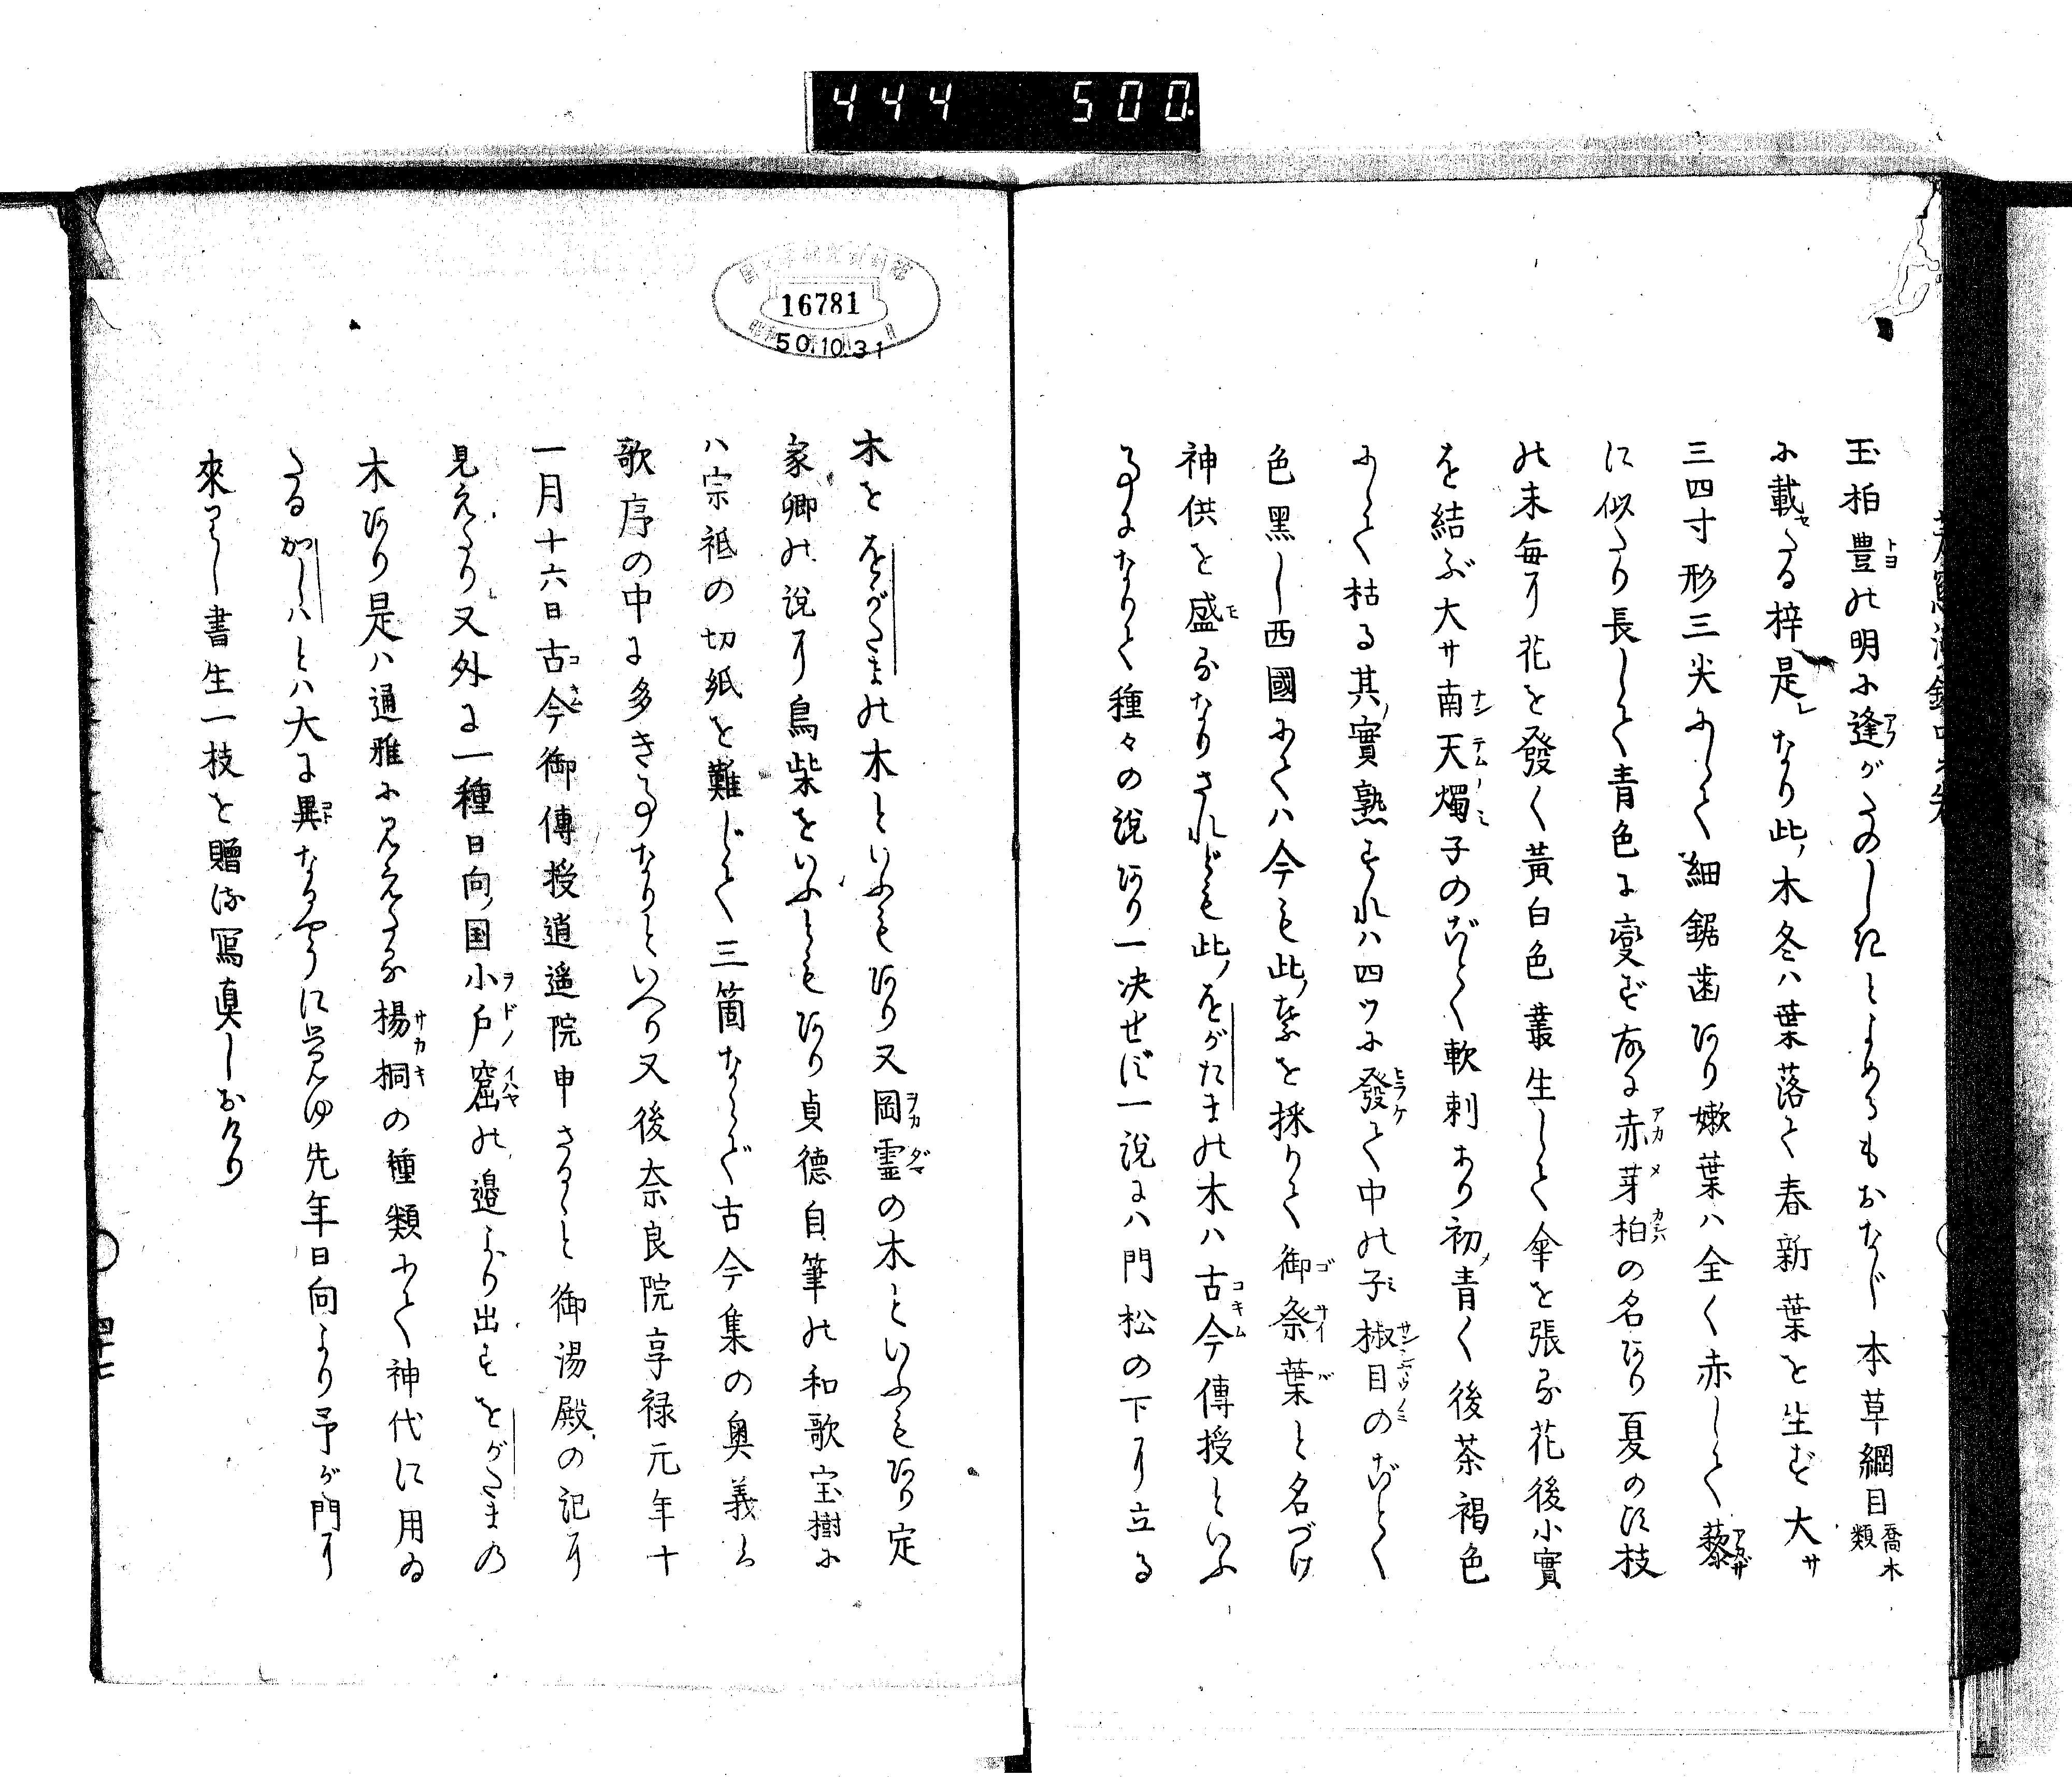 444 500.
玉柏豊の明に逢がたのしきとよめるもおなじ本草綱目喬木類
に載たる梓是なり此木冬ハ葉落て春新葉を生ず大サ
三四寸形三尖にして細鋸歯あり嫩葉ハ全く赤して藜
に似たり長して青色に変ず故に赤芽柏の名あり夏のに枝
の末毎に花を發く黄白色叢生して傘を張る花後小實
を結ぶ大サ南天燭子のごとく軟刺あり初青く後茶褐色
にして枯る其實熟すれハ四ツに發て中の子椒目のごとく
色黑し西國にてハ今も此葉を採りて御祭葉と名づけ
神供を盛るなりされども此をがたまの木ハ古今傳授といふ
事になりて種々の説あり一决せず一説にハ門松の下に立る
16781
50.10.31
木ををがたまの木といふもあり又岡霊の木といふもあり定
家卿の説に鳥柴をいふともあり貞德自筆の和歌宝樹に
ハ宗祗の切紙を難じて三箇ならず古今集の奥義ハ
歌序の中に多き事なりといへり又後奈良院享禄元年十
一月十六日古今御傳授逍遥院申さるゝと御湯殿の記に
見えたり又外に一種日向国小戸窟の邉より出すをがたまの
木あり是ハ通雅に見えたる楊桐の種類にて神代に用ゐ
たるかしハとハ大に異なるやうに覚ゆ先年日向より予が門に
來りし書生一枝を贈る写真しおけり
四十七